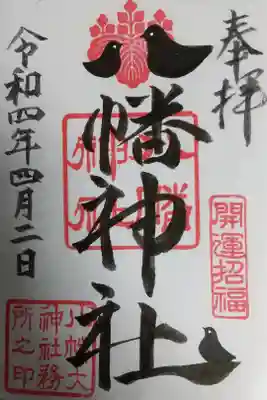 奉拝
開運招福
八幡神社
令和四年四月二日
八幡大
神社務
所之印